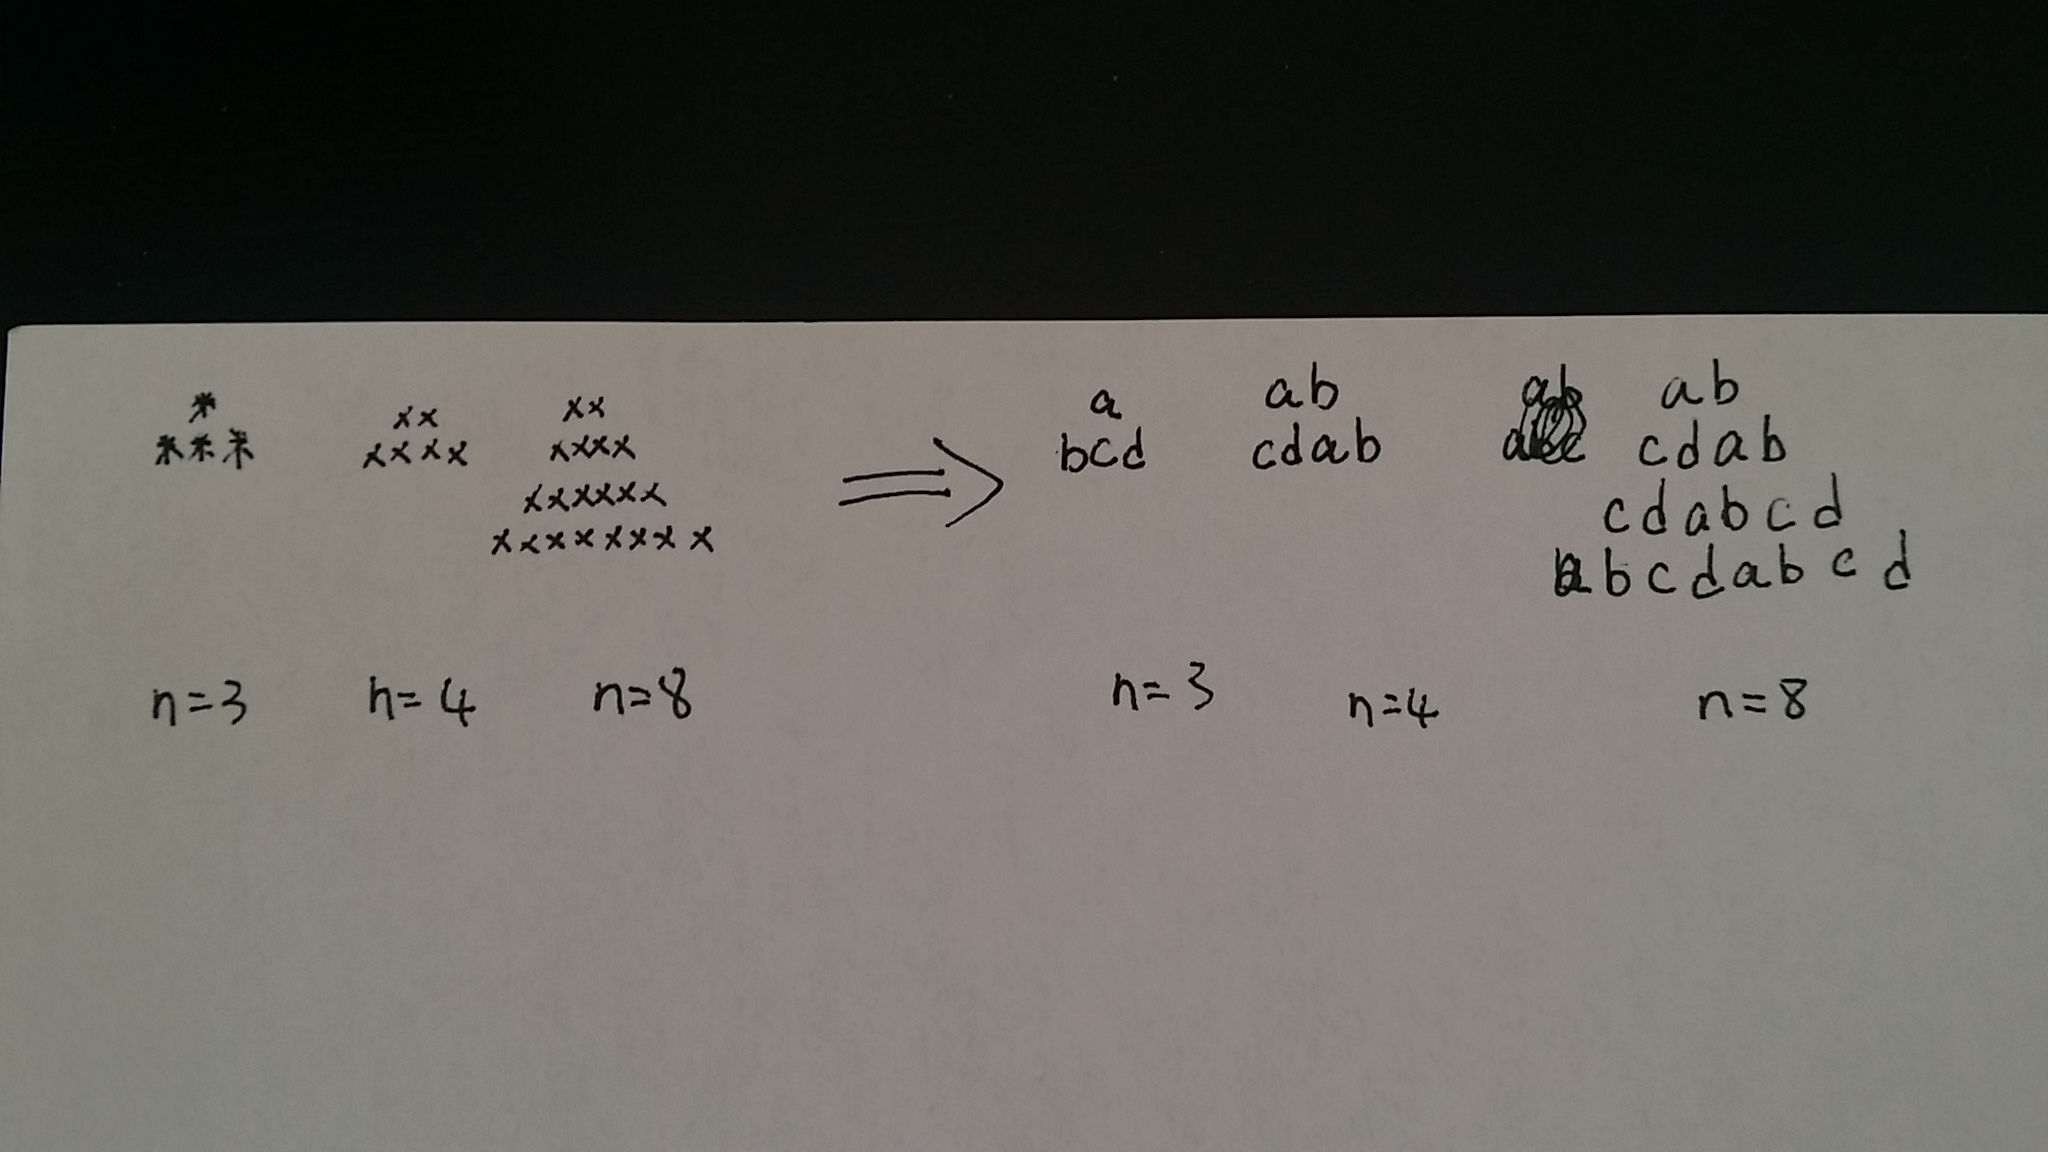 * xx xx
*** xxxx xxxx
xxxxxx
xxxxxxxx
⇒
a ab ab
bcd cdab cdab
cdabcd
abcdabcd
n=3 n=4 n=8 n=3 n=4 n=8